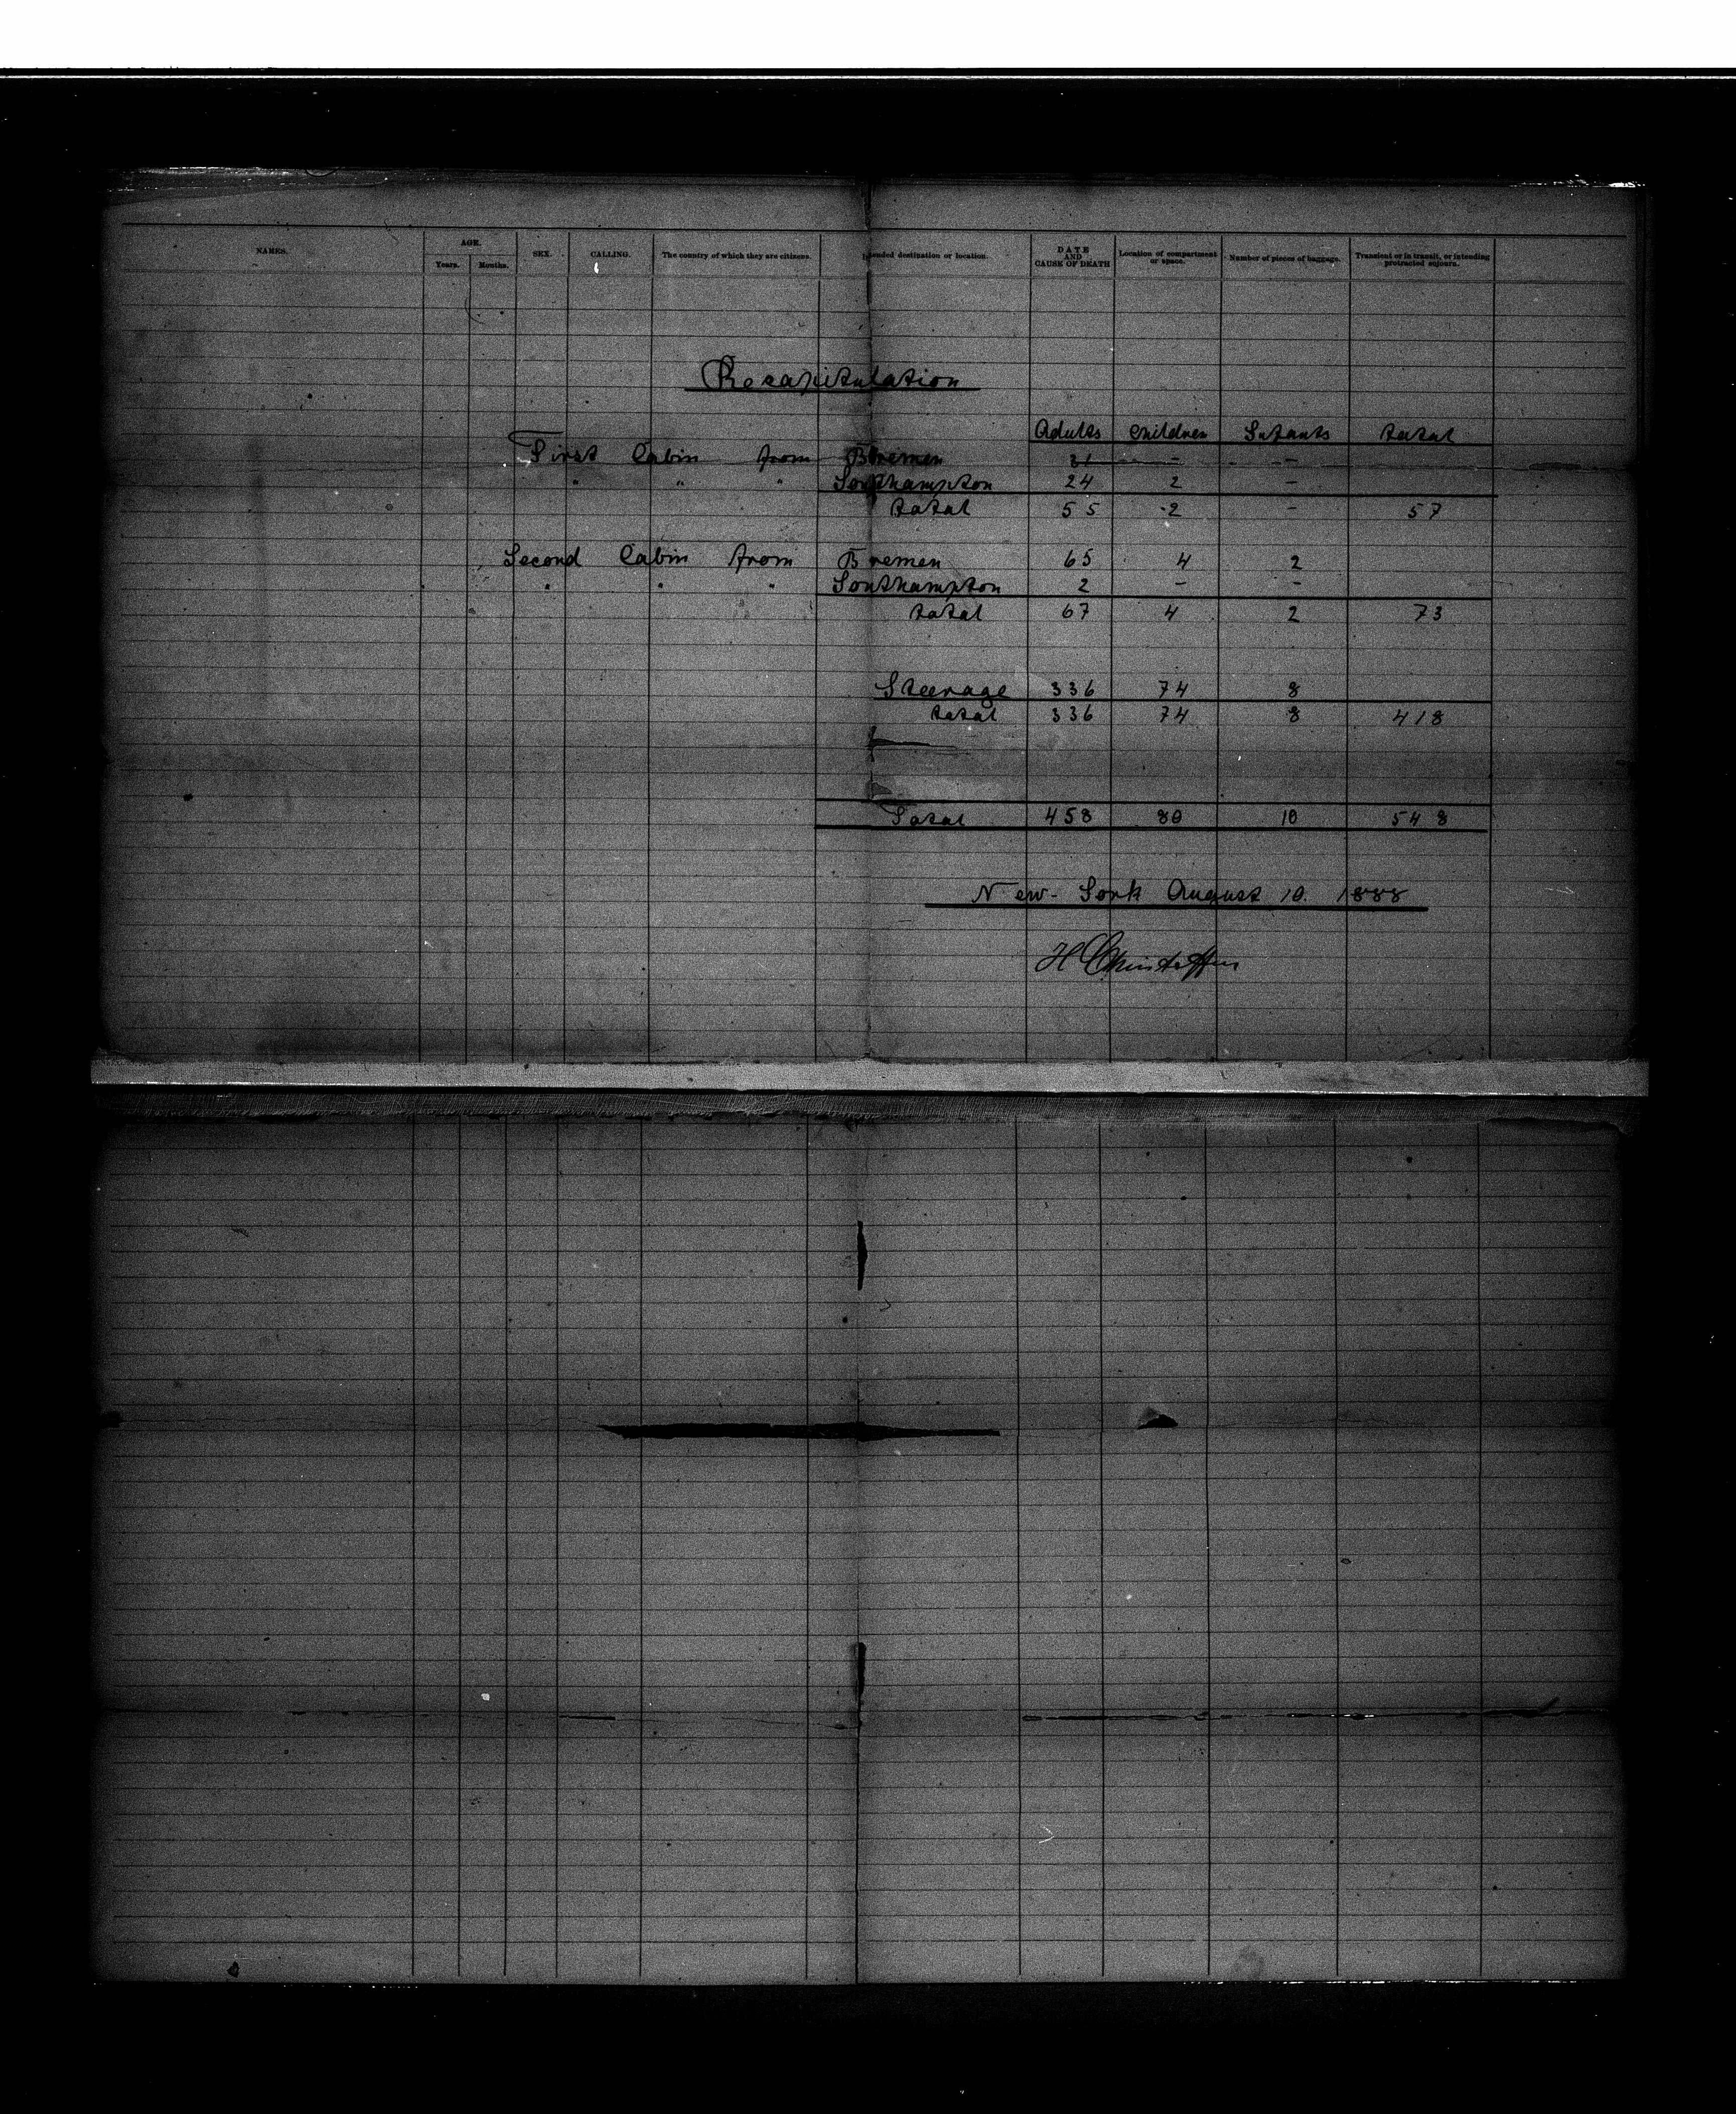 NAMES. AGE. SEX. CALLING. The country of which they are citizens. Intended destination or location. DATE AND CAUSE OF DEATH Location of compartment or space. Number of pieces of baggage. Transient or in transit, or intending protracted sojourn.
Years. Months.
Recapitulation
Adults Children Infants total
First Cabin from Bremen 31 - -
" " " Southampton 24 2 -
total 55 2 - 57
Second Cabin from Bremen 65 4 2
" " " Southampton 2 - -
total 67 4 2 73
Steerage 336 74 8
total 336 74 8 418
Total 458 80 10 548
New-York August 10. 1888
H Christoffers